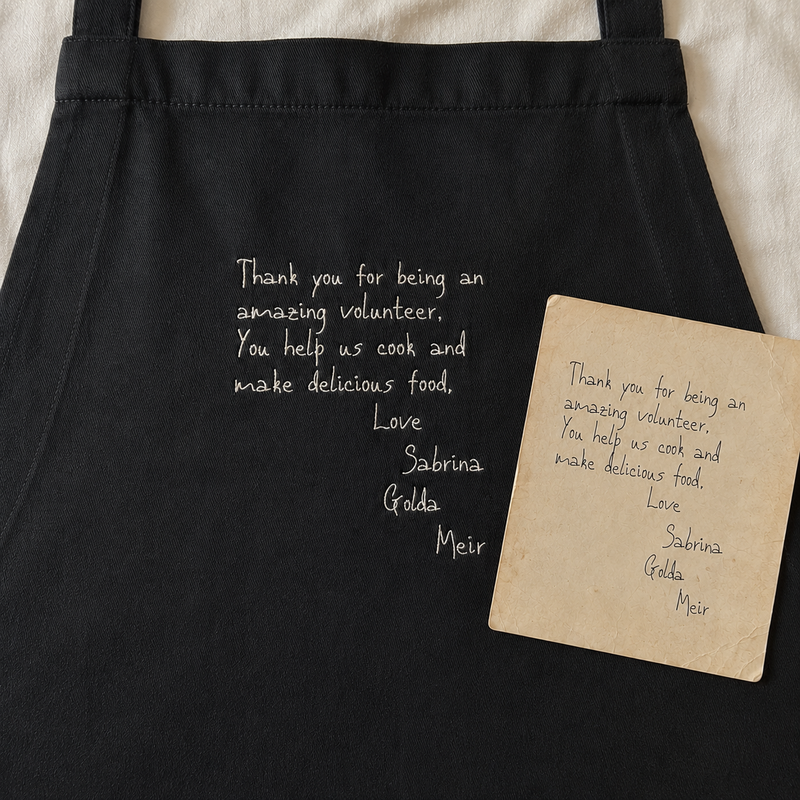 Thank you for being an
amazing volunteer.
You help us cook and
make delicious food.
Love
Sabrina
Golda
Meir
Thank you for being an
amazing volunteer.
You help us cook and
make delicious food.
Love
Sabrina
Golda
Meir